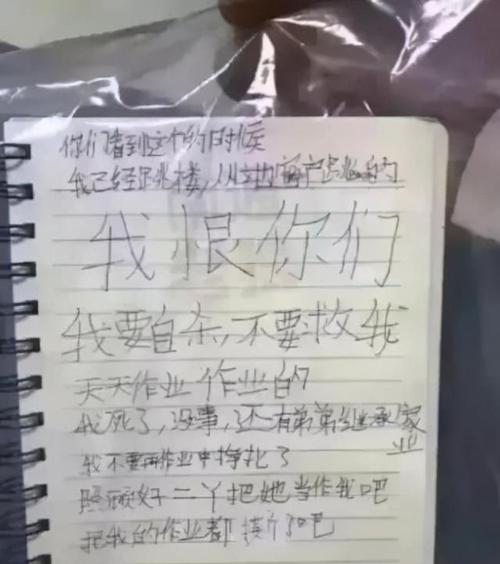 你们看到这个的时候
我已经跳楼,从窗户跳的
我恨你们
我要自杀,不要救我
天天作业作业的
我死了,没事,还有弟弟继承家
业
我不要再作业中挣扎了
照顾好二丫把她当作我吧
把我的作业都撕了吧